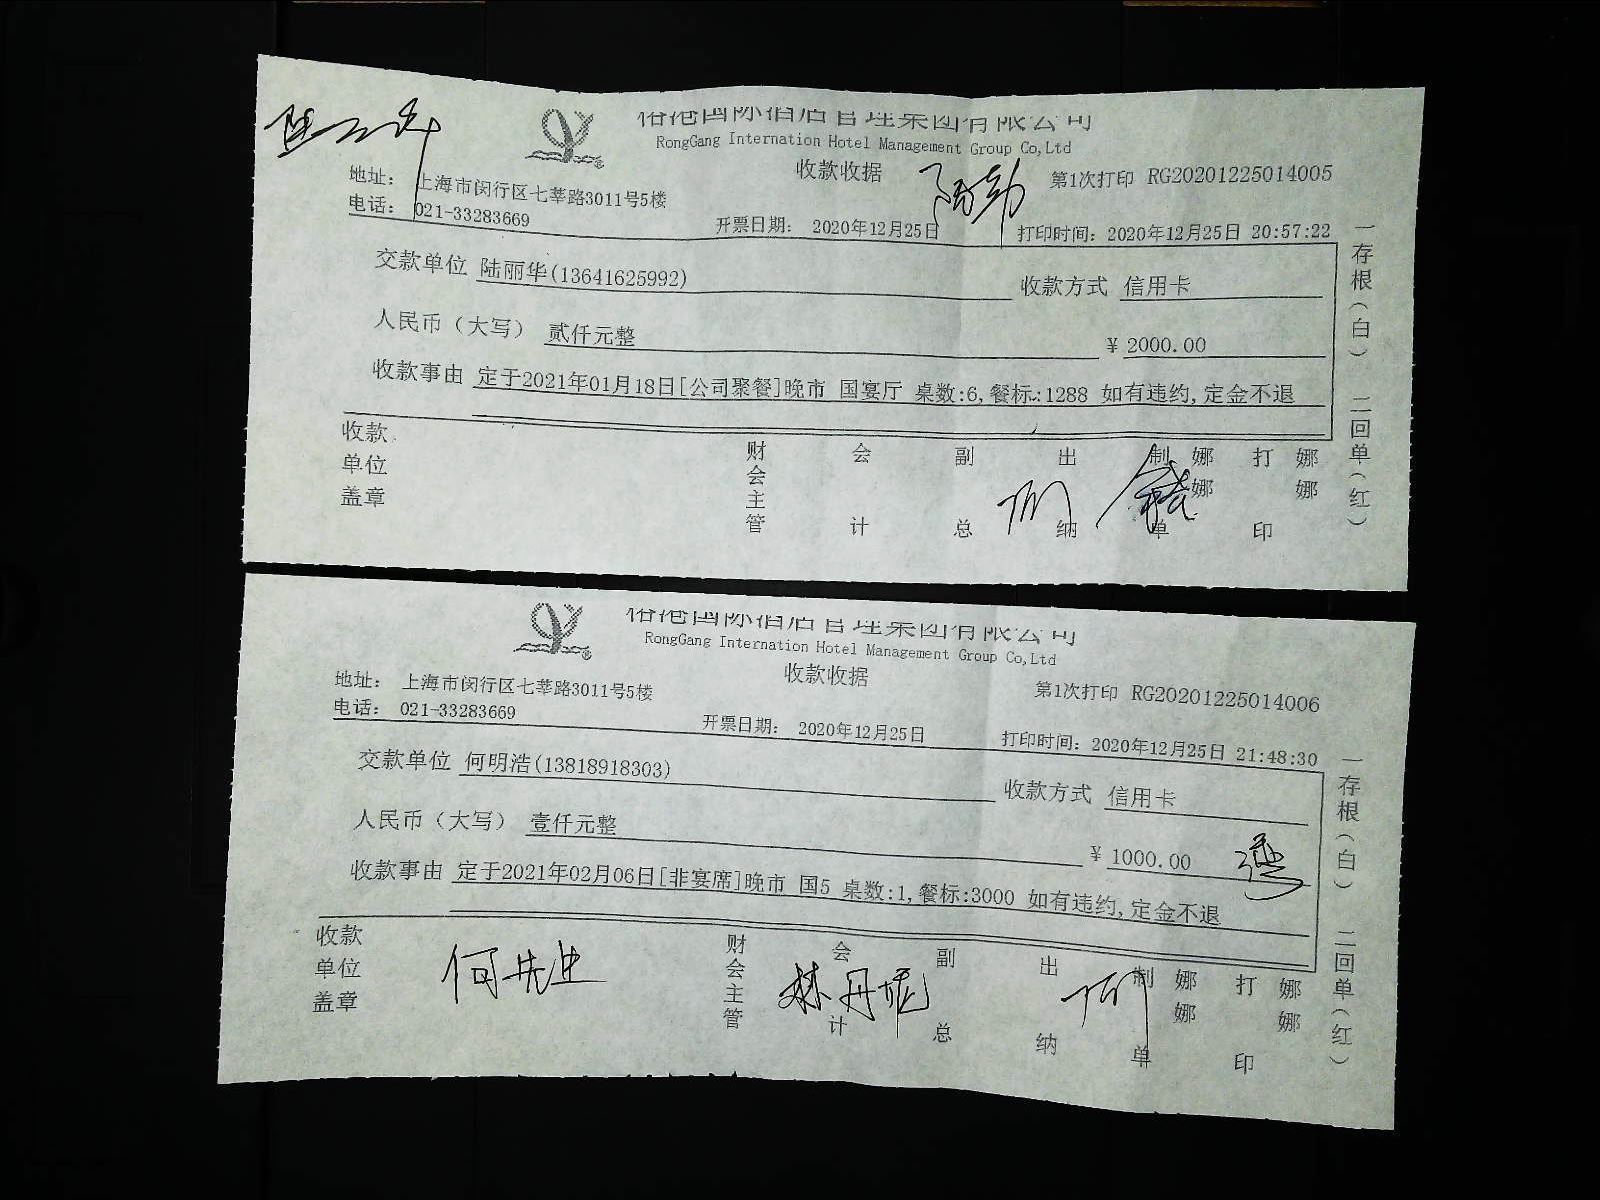 裕港国际酒店管理集团有限公司
RongGang Internation Hotel Management Group Co,Ltd
收款收据
第1次打印 RG20201225014005
地址: 上海市闵行区七莘路3011号5楼
电话: 021-33283669
开票日期: 2020年12月25日
打印时间: 2020年12月25日 20:57:22
交款单位 陆丽华(13641625992)
收款方式 信用卡
人民币(大写) 贰仟元整
¥ 2000.00
收款事由 定于2021年01月18日[公司聚餐]晚市 国宴厅 桌数:6,餐标:1288 如有违约,定金不退
收款单位盖章
财会主管
会计
副总
出纳
制单
娜娜
打印
娜娜
一存根(白) 二回单(红)
裕港国际酒店管理集团有限公司
RongGang Internation Hotel Management Group Co,Ltd
收款收据
第1次打印 RG20201225014006
地址: 上海市闵行区七莘路3011号5楼
电话: 021-33283669
开票日期: 2020年12月25日
打印时间: 2020年12月25日 21:48:30
交款单位 何明浩(13818918303)
收款方式 信用卡
人民币(大写) 壹仟元整
¥ 1000.00
收款事由 定于2021年02月06日[非宴席]晚市 国5 桌数:1,餐标:3000 如有违约,定金不退
收款单位盖章
何先生
财会主管
会计
林丹妮
副总
出纳
制单
娜娜
打印
娜娜
一存根(白) 二回单(红)